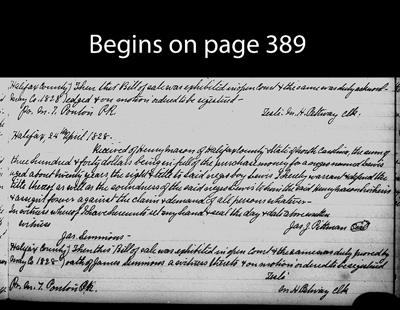 Begins on page 389
Halifax County} Then this Bill of sale was exhibited in open Court & the same was duly acknowl-
May Ct. 1828} edged & on motion ordered to be registered –
Per. M. T. Ponton P.R. Teste: M. H. Pettway clk.
Halifax, 24th April, 1828.
Received of Henry Mason of Halifax County & State of North Carolina, the sum of
three hundred & forty dollars being in full of the purchase money for a negro named Lewis
aged about twenty years, the right & title to said negro boy Lewis I hereby warrant & defend the
title thereof as well as the soundness of the said negro Lewis to him the said Henry Mason his heirs
& assigns forever against the claim & demand of all persons whatever –
In witness whereof I have hereunto set my hand & seal the day & date above written
witness Jas. J. Pittman
Jas Simmons –
Halifax County} Then this Bill of sale was exhibited in open Court & the same was duly proved by
May Ct. 1828} oath of James Simmons a witness thereto & on motion ordered to be registered
Teste
Per. M. T. Ponton P.R. M. H. Pettway clk